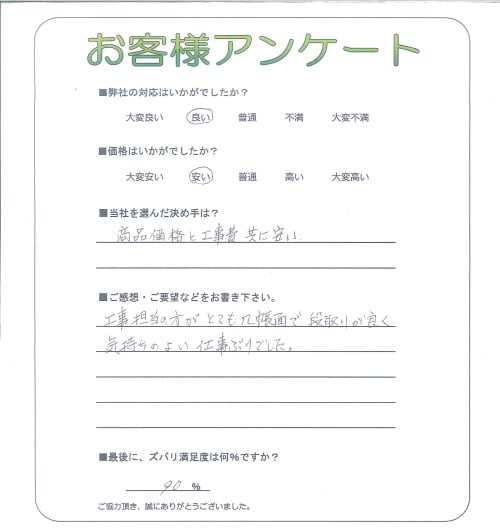 お客様アンケート
■弊社の対応はいかがでしたか？
大変良い 良い 普通 不満 大変不満
■価格はいかがでしたか？
大変安い 安い 普通 高い 大変高い
■当社を選んだ決め手は？
商品価格と工事費共に安い
■ご感想・ご要望などをお書き下さい。
工事担当の方がとても几帳面で段取りが良く
気持ちのよい仕事ぶりでした。
■最後に、ズバリ満足度は何%ですか？
90 %
ご協力頂き、誠にありがとうございました。